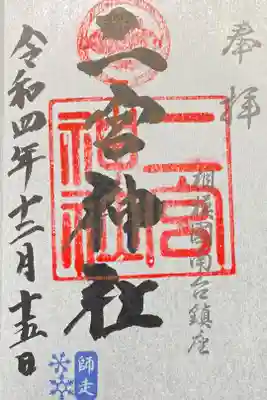 奉拝
相模國南台鎮座
二宮神社
二宮
神社
令和四年十二月十五日
師走